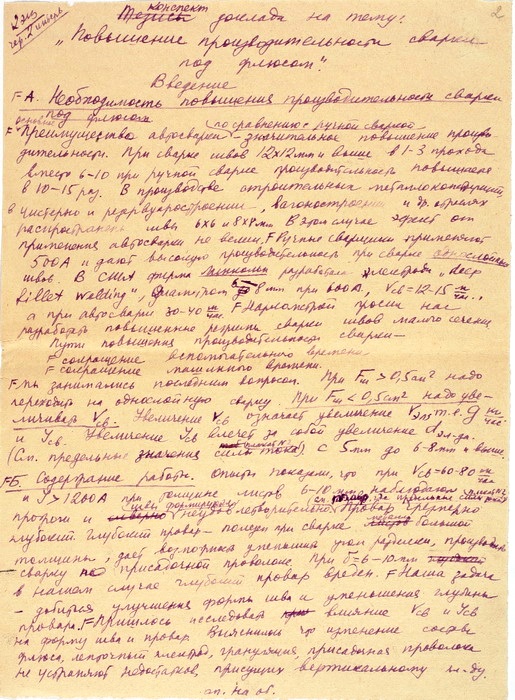 2 экз
чер. Тиноель
2
Конспект
Тезисы доклада на тему:
„Повышение производительности сварки
под флюсом".
Введение
FА. Необходимость повышения производительности сварки
под флюсом
основные по сравнению с ручной сваркой
F Преимущество автосварки – значительное повышение произво-
дительности. При сварке швов 12х12мм и выше в 1-3 прохода
вместо 6-10 при ручной сварке производительность повышаем
в 10-15 раз. В производстве строительных металлоконструкций,
в цистерно и резервуаростроении, вагоностроении и др. отраслях
распространены швы 6х6 и 8х8мм. В этом случае эффект от
применения автосварки не велик. F Ручные сварщики применяют
500А и дают высокую производительность при сварке однослойных
швов. В США фирма разработала электроды „deep
fillet welding", диаметром 8мм при 600А, Vсв=12-15 м/час.,
а при автосварке 30-40 м/час. F Наркомстрой просил нас
разработать повышенные режимы сварки швов малого сечения
Пути повышения производительности сварки –
F сокращение вспомогательного времени.
F сокращение машинного времени.
F Мы занимались последним вопросом. При Fш > 0,5см² надо
переходить на однослойную сварку. При Fш < 0,5см² надо уве-
личивать Vсв. Увеличение Vсв означает увеличение т.е. g
и Jсв. Увеличение Jсв влечет за собой увеличение dэл-да.
(См. предельные значения силы тока), с 5мм до 6-8мм и выше.
FБ. Содержание работы. Опыты показали, что при Vсв=60-80 м/час
и J > 1200А при толщине листов 6-10 мм наблюдались
прожоги и шов формируется неудовлетворительно. Провар чрезмерно
глубокий. Глубокий провар – полезен при сварке большой
толщины, дает возможность уменьшить угол разделки, производить
сварку по присадочной проволоке. При δ=6-10мм
в нашем случае глубокий провар вреден. F Наша задача
– добиться улучшения формы шва и уменьшения глубины
провара. F Пришлось исследовать влияние Vсв и Jсв
на форму шва и провар. Выяснили что изменение состава
флюса, ленточный электрод, грануляция, присадочная проволока
не устраняют недостатков, присущих вертикальному эл-ду.
см. на об.